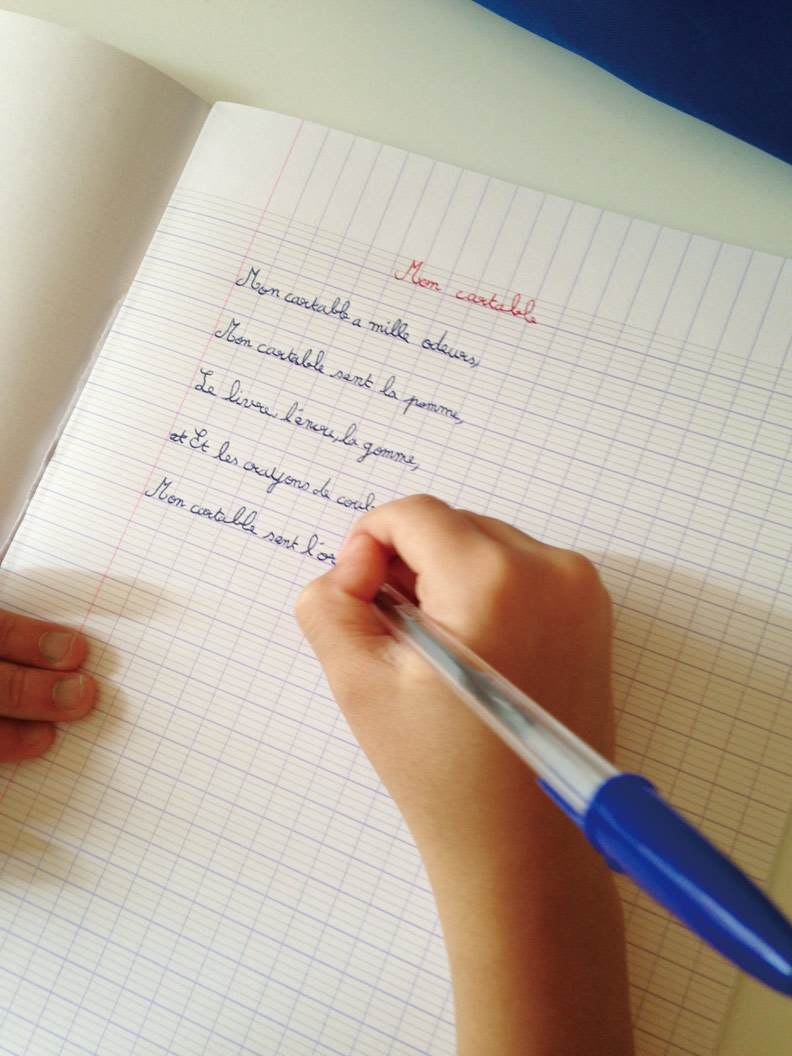 Mon cartable
Mon cartable a mille odeurs,
Mon cartable sent la pomme,
Le livre, l'encre, la gomme,
et Et les crayons de coul
Mon cartable sent l'or